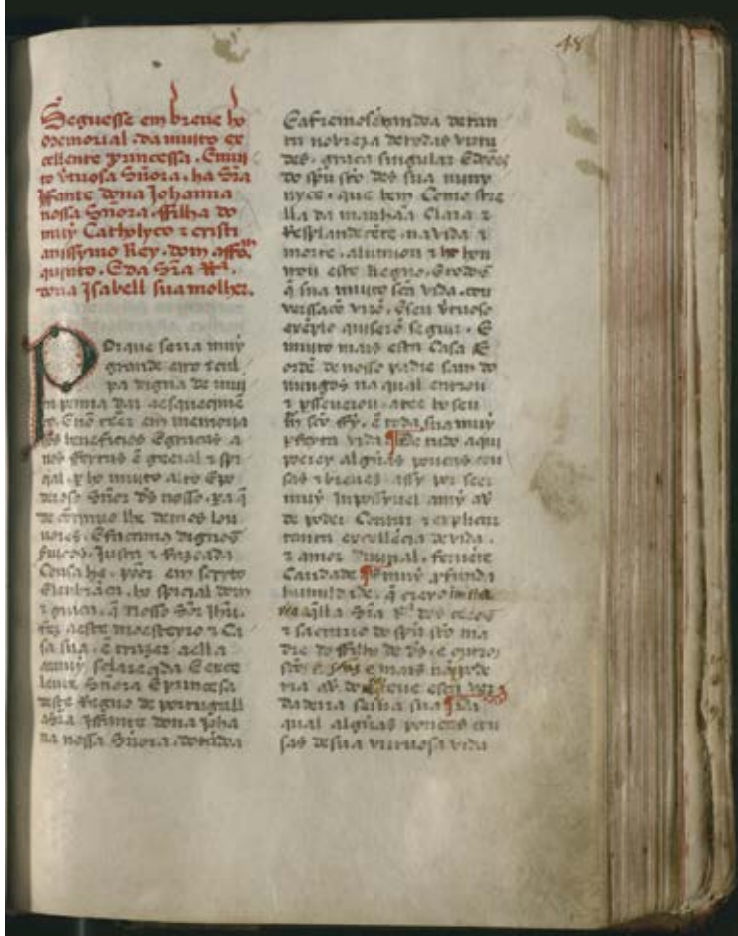 48
Seguesse em breve ho
memorial. da muito ex
cellente princessa. E mui
to vtuosa Sñora. ha Sra
Iffante dona Johanna
nossa Sñora. ffilha do
muy Catholyco z cristi
anissymo Rey. dom affo
quinto. E da Sra
dona Isabell sua molher.
Por que seria muy
grande erro z cul
pa digna de mui
ta penna dar a esquecimē
to. E nō teer em memoria
os beneficios E graças a
nos feytas ē geeral z spi
al. p ho muito alto E po
deroso Sñor ds nosso. pa q
de cōtinuo lhe demos lou
vores. E façamos dignos
fruitos. Justa z Razoada
Cousa he. poer em scpyto
E lenbrāça. ho special dom
z graça. q nosso Sñor Jhu.
fez a este moesteyro z Ca
sa sua. ē trazer a ella
a muy esclareçida E exce
lente Sñora E princesa
deste Regno de portugall
a Sra Iffante dona Joha
na nossa Sñora. dotada
E afremosentada de tan
ta nobreza de todas virtu
des. graça singular E does
do spu sto des sua meny
nyce. que bem Como stre
lla da manhãa Clara z
Resplandeçēte. na vida z
morte. alumiou z ho hon
rou este Regno. E todos
q sua muito scā vida. con
verssaçō virō. E seu vtuoso
exēplo quiserō seguir. E
muito mais esta Casa E
ordē de nosso padre sam do
mingos na qual entrou
z psseverou. atee ho seu
fy. ē toda sua muy
pfeyta vida De tudo aqui
poerey algūas poucas cou
sas z breves. assy por seer
muy Inpossyvel a my av
de poder Contar z explicar
tanta excellēcia de vida.
z amor divinal. fervēte
Caridade muy profunda
humildade. q creyo
aqlla Sra dos ceeos
z sacrario do spu sto ma
dre do ffilho de ds. e outros
e mais nō pode
ria av. esta ver
dadeira serva sua Da
qual algūas poucas cou
sas de sua virtuosa vida